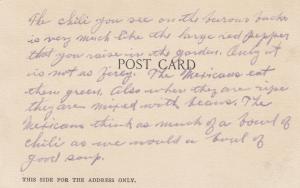 The chili you see on the burros backs
is very much like the large red pepper
that you raise in the garden. Only it
is not as firey. The Mexicans eat
POST CARD
them green. Also when they are ripe
they are mixed with beans. The
Mexicans think as much of a bowl of
chili as we would a bowl of
good soup.
THIS SIDE FOR THE ADDRESS ONLY.